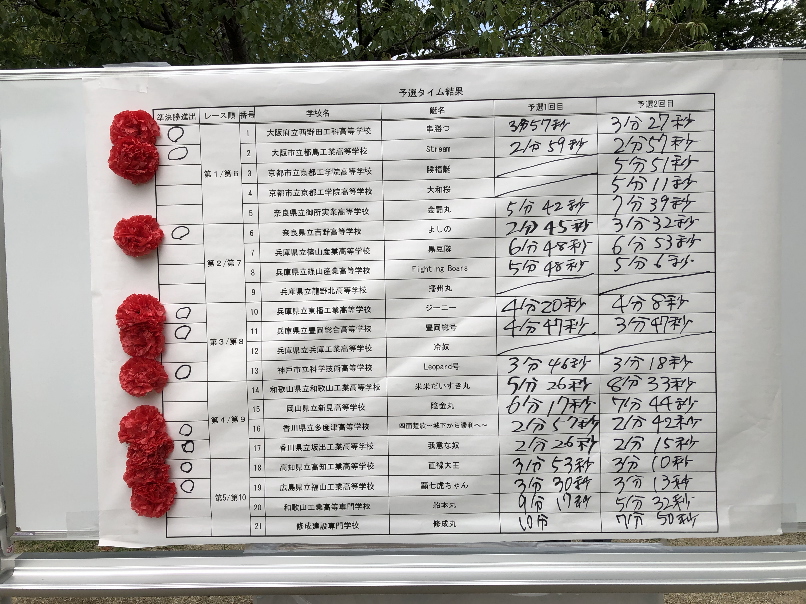 予選タイム結果
準決勝進出 レース順 番号 学校名 艇名 予選1回目 予選2回目
第1/第6
1 大阪府立西野田工科高等学校 串勝つ 3分57秒 3分27秒
2 大阪市立都島工業高等学校 Stream 2分59秒 2分57秒
3 京都市立京都工学院高等学校 勝福艇 5分51秒
4 京都市立京都工学院高等学校 大和桜 5分11秒
5 奈良県立御所実業高等学校 金剛丸 5分42秒 7分39秒
第2/第7
6 奈良県立吉野高等学校 よしの 2分45秒 3分32秒
7 兵庫県立篠山産業高等学校 黒豆隊 6分48秒 6分53秒
8 兵庫県立篠山産業高等学校 Fighting Boars 5分48秒 5分6秒
9 兵庫県立龍野北高等学校 播州丸
第3/第8
10 兵庫県立東播工業高等学校 ジーニー 4分20秒 4分8秒
11 兵庫県立豊岡総合高等学校 豊岡総号 4分47秒 3分47秒
12 兵庫県立兵庫工業高等学校 冷奴
13 神戸市立科学技術高等学校 Leopard号 3分46秒 3分18秒
第4/第9
14 和歌山県立和歌山工業高等学校 米米だいすき丸 5分26秒 8分33秒
15 岡山県立新見高等学校 陰金丸 6分17秒 7分44秒
16 香川県立多度津高等学校 2分57秒 2分42秒
17 香川県立坂出工業高等学校 我意な奴 2分26秒 2分15秒
第5/第10
18 高知県立高知工業高等学校 直線大王 3分53秒 3分10秒
19 広島県立福山工業高等学校 覇七虎ちゃん 3分30秒 3分13秒
20 和歌山工業高等専門学校 9分17秒 5分32秒
21 修成建設専門学校 修成丸 10分 7分50秒